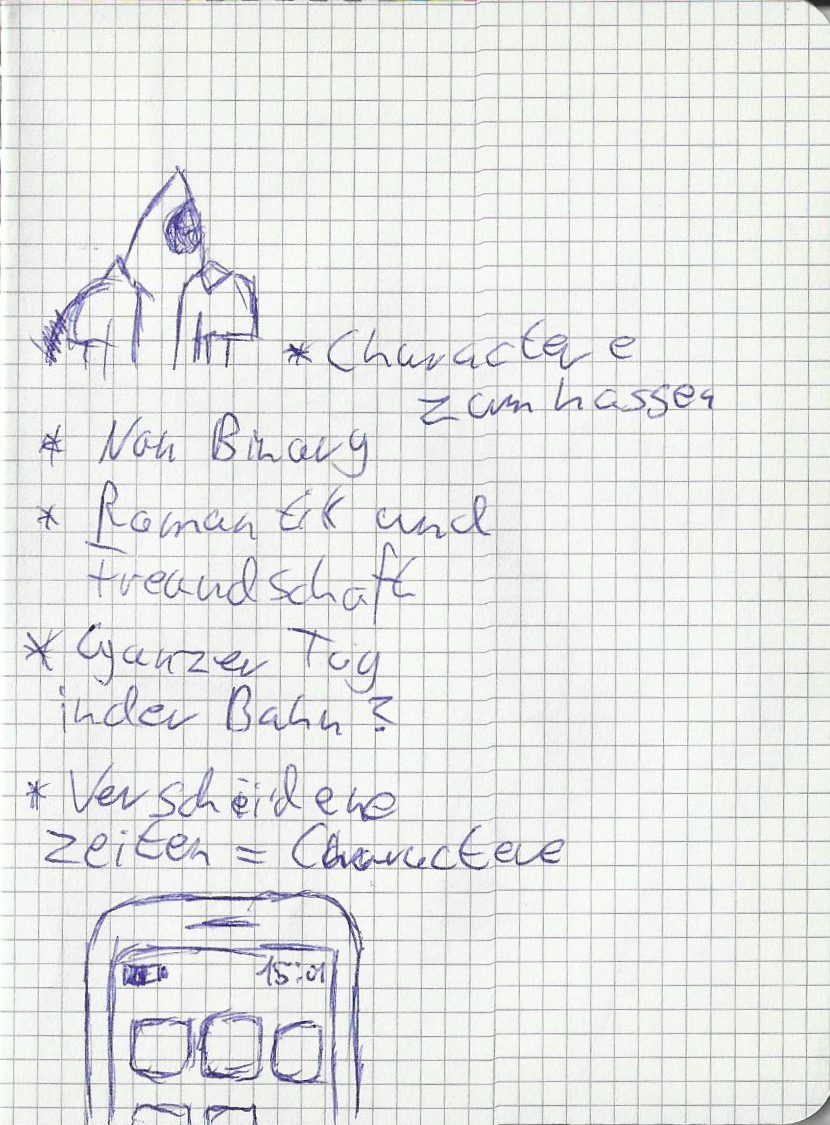 * Charactere
zum hassen
* Non Binary
* Romantik und
freundschaft
* Ganzer Tag
in der Bahn?
* Verscheidene
zeiten = Charactere
15:01